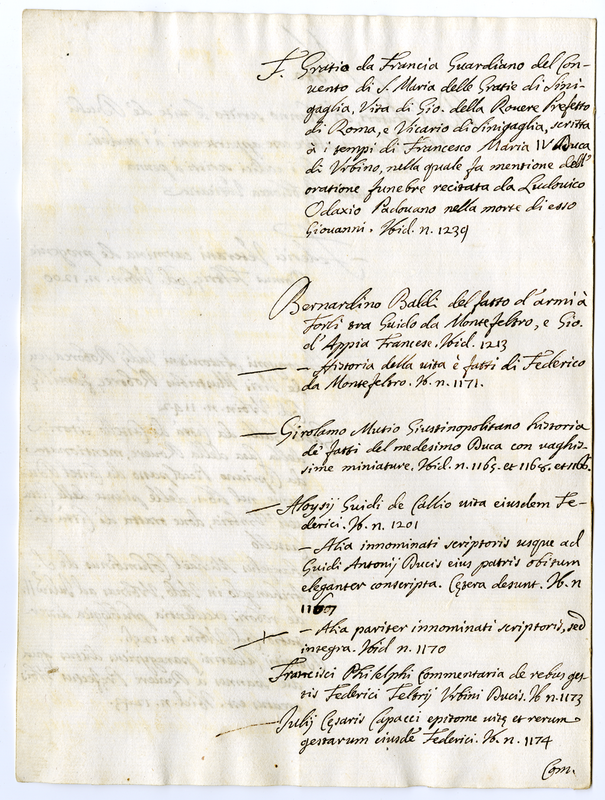 F. Gratio da Francia Guardiano del Con-
vento di S. Maria delle Gratie di Sini-
gaglia, Vita di Gio. della Rouere Prefetto
di Roma, e Vicario di Sinigaglia, scritta
à i tempi di Francesco Maria IV Duca
di Vrbino, nella quale fa mentione dell'
oratione funebre recitata da Ludouico
Odaxio Padouano nella morte di esso
Giouanni. Ibid. n. 1239
Bernardino Baldi del fatto d'armi à
Forlì tra Guido da Montefeltro, e Gio.
d'Appia Francese. Ibid. 1213
— - Historia della vita è fatti di Federico
da Montefeltro. Ib. n. 1171.
— Girolamo Mutio Giustinopolitano historia
de' fatti del medesimo Duca con vaghis-
sime miniature. Ibid. n. 1165. et 1168. et
— Aloysij Guidi de Callio uita eiusdem Fe-
derici. Ib. n. 1201
- Alia innominati scriptoris usque ad
Guidi Antonij Ducis eius patris obitum
eleganter conscripta. Cętera desunt. Ib. n
— - Alia pariter innominati scriptoris, sed
integra. Ibid n. 1170
Francisci Philelphi Commentaria de rebus ges-
tis Federici Feltrij Vrbini Ducis. Ib n. 1173
— Julij Cęsaris Capacci epitome uitę et rerum
gestarum eiusdē Federici. Ib. n. 1174
Com.